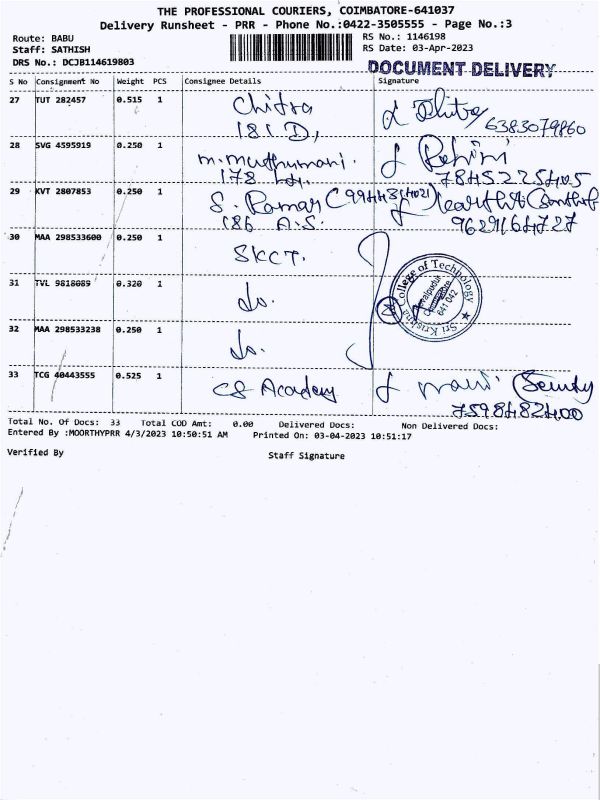 THE PROFESSIONAL COURIERS, COIMBATORE-641037
Delivery Runsheet - PRR - Phone No.:0422-3505555 - Page No.:3
Route: BABU
RS No.: 1146198
Staff: SATHISH
RS Date: 03-Apr-2023
DRS No.: DCJB114619803
DOCUMENT DELIVERY
S No Consignment No Weight PCS Consignee Details Signature
27 TUT 282457 0.515 1 Chitra
181 D, 6383079860
28 SVG 4595919 0.250 1 m. muthumani.
178 7845225405
29 KVT 2807853 0.250 1 S. Raman
186 A.S. 9629164727
30 MAA 298533600 0.250 1 SKCT.
31 TVL 9818089 0.320 1 do.
Sri Krishna College of Technology
641 042
32 MAA 298533238 0.250 1 do.
33 TCG 40443555 0.525 1 CS Academy
7598482400
Total No. Of Docs: 33 Total COD Amt: 0.00 Delivered Docs: Non Delivered Docs:
Entered By :MOORTHYPRR 4/3/2023 10:50:51 AM Printed On: 03-04-2023 10:51:17
Verified By Staff Signature